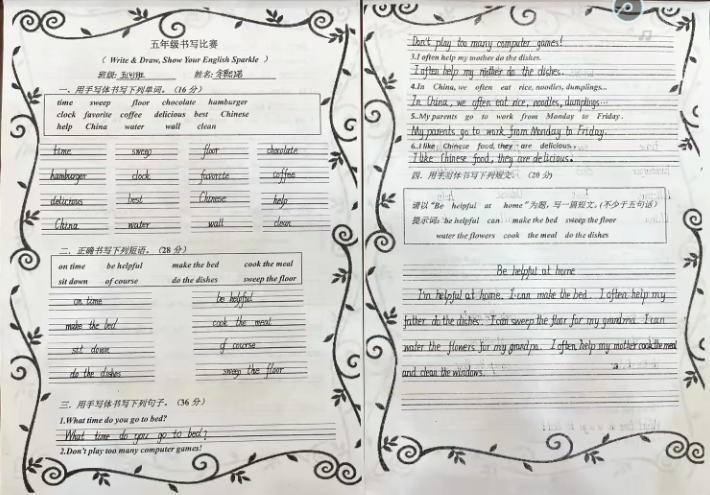 五年级书写比赛
( Write & Draw, Show Your English Sparkle )
班级: 姓名:
一、用手写体书写下列单词。(16 分)
time sweep floor chocolate hamburger
clock favorite coffee delicious best Chinese
help China water wall clean
time sweep floor chocolate
hamburger clock favorite coffee
delicious best Chinese help
China water wall clean
二、正确书写下列短语。(28 分)
on time be helpful make the bed cook the meal
sit down of course do the dishes sweep the floor
on time be helpful
make the bed cook the meal
sit down of course
do the dishes sweep the floor
三、用手写体书写下列句子。(36 分)
1.What time do you go to bed?
What time do you go to bed?
2.Don't play too many computer games!
Don't play too many computer games!
3.I often help my mother do the dishes.
I often help my mother do the dishes.
4.In China, we often eat rice, noodles, dumplings...
In China, we often eat rice, noodles, dumplings...
5.My parents go to work from Monday to Friday.
My parents go to work from Monday to Friday.
6.I like Chinese food, they are delicious.
I like Chinese food, they are delicious.
四、用手写体书写下列短文。(20 分)
请以“Be helpful at home”为题,写一篇短文。(不少于五句话)
提示词: be helpful can make the bed sweep the floor
water the flowers cook the meal do the dishes
Be helpful at home
I'm helpful at home. I can make the bed. I often help my
father do the dishes. I can sweep the floor for my grandma. I can
water the flowers for my grandpa. I often help my mother cook the meal
and clean the windows.